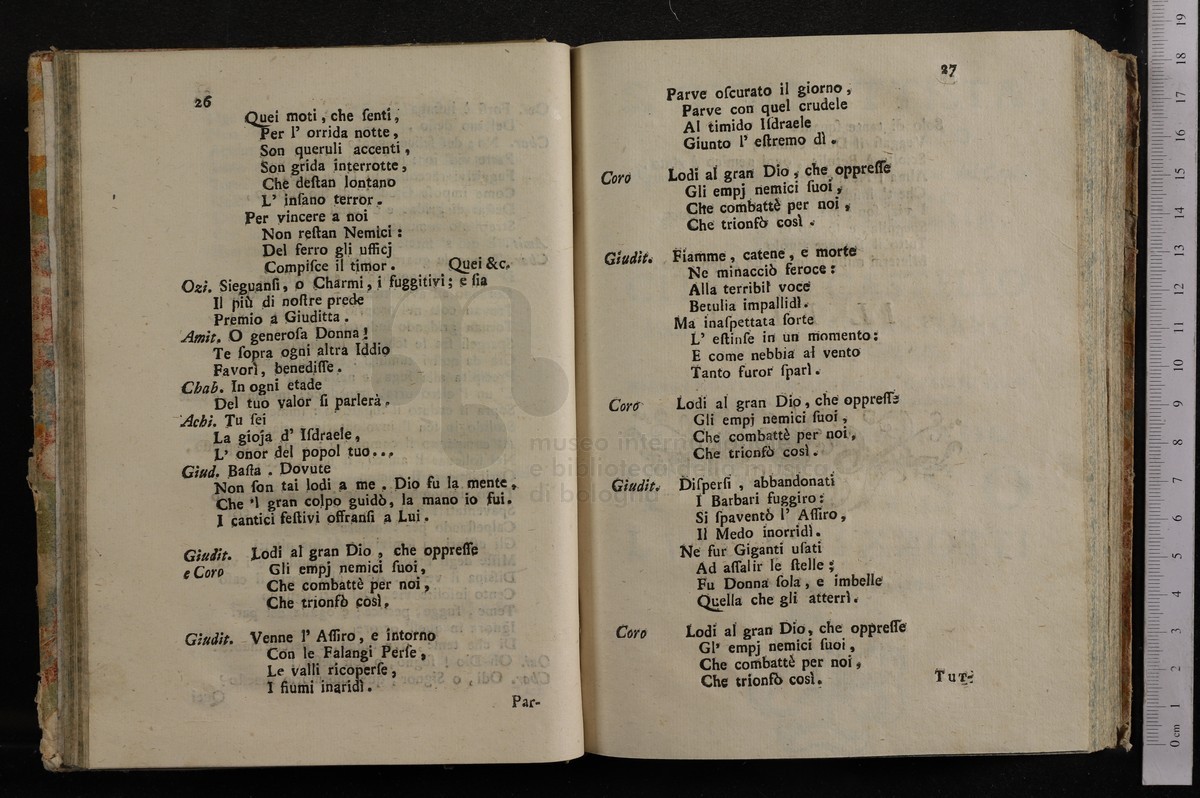 26
Quei moti, che ſenti,
Per l' orrida notte,
Son queruli accenti,
Son grida interrotte,
Che deſtan lontano
L' inſano terror.
Per vincere a noi
Non reſtan Nemici:
Del ferro gli ufficj
Compiſce il timor. Quei &c.
Ozi. Sieguanſi, o Charmi, i fuggitivi; e ſia
Il più di noſtre prede
Premio a Giuditta.
Amit. O generoſa Donna!
Te ſopra ogni altra Iddio
Favorì, benediſſe.
Chab. In ogni etade
Del tuo valor ſi parlerà.
Achi. Tu ſei
La gioja d' Iſdraele,
L' onor del popol tuo...
Giud. Baſta. Dovute
Non ſon tai lodi a me. Dio fu la mente,
Che 'l gran colpo guidò, la mano io fui.
I cantici feſtivi offranſi a Lui.
Giudit. Lodi al gran Dio, che oppreſſe
e Coro Gli empj nemici ſuoi,
Che combattè per noi,
Che trionfò così.
Giudit. Venne l' Aſſiro, e intorno
Con le Falangi Perſe,
Le valli ricoperſe,
I fiumi inaridì.
Par-
27
Parve oſcurato il giorno,
Parve con quel crudele
Al timido Iſdraele
Giunto l' eſtremo dì.
Coro Lodi al gran Dio, che oppreſſe
Gli empj nemici ſuoi,
Che combattè per noi,
Che trionfò così.
Giudit. Fiamme, catene, e morte
Ne minacciò feroce:
Alla terribil voce
Betulia impallidì.
Ma inaſpettata ſorte
L' eſtinſe in un momento:
E come nebbia al vento
Tanto furor ſparì.
Coro Lodi al gran Dio, che oppreſſe
Gli empj nemici ſuoi,
Che combattè per noi,
Che trionfò così.
Giudit. Diſperſi, abbandonati
I Barbari fuggiro:
Si ſpaventò l' Aſſiro,
Il Medo inorridì.
Ne fur Giganti uſati
Ad aſſalir le ſtelle;
Fu Donna ſola, e imbelle
Quella che gli atterrì.
Coro Lodi al gran Dio, che oppreſſe
Gl' empj nemici ſuoi,
Che combattè per noi,
Che trionfò così.
Tut-
museo internazionale
e biblioteca della musica
di bologna
0 cm 1 2 3 4 5 6 7 8 9 10 11 12 13 14 15 16 17 18 19